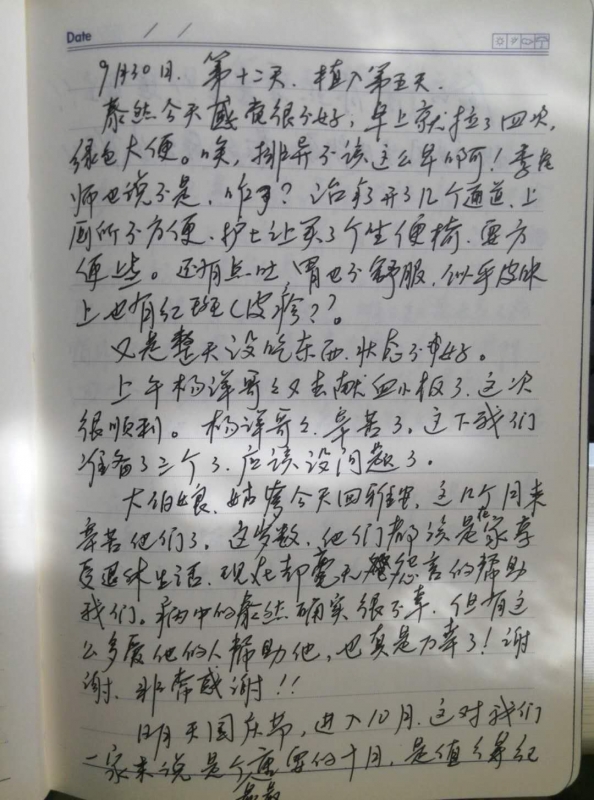 Date / /
9月30日. 第十二天. 植入第五天.
骉然今天感觉很不好, 早上就拉了四次,
绿色大便。唉, 排异不该这么早啊! 李医
师也说不是, 咋了? 治疗开了几个通道, 上
厕所不方便, 护士让买了个坐便椅, 要方
便些。还有点吐, 胃也不舒服, 似乎皮肤
上也有红斑(皮疹??。
又是整天没吃东西, 状态不好。
上午杨洋哥又去献血小板了, 这次
很顺利。杨洋哥辛苦了, 这下我们
准备了三个了, 应该没问题了。
大伯娘、姑爹今天回雅安, 这几个月来
辛苦他们了。这岁数, 他们都该是在家享
受退休生活, 现在却毫无怨言的帮助
我们。病中的然确实很不幸, 但有这
么多爱他的人帮助他, 也真是万幸了! 谢
谢, 非常感谢!!
明天国庆节, 进入10月, 这对我们
一家来说是个重要的十月, 是值得纪